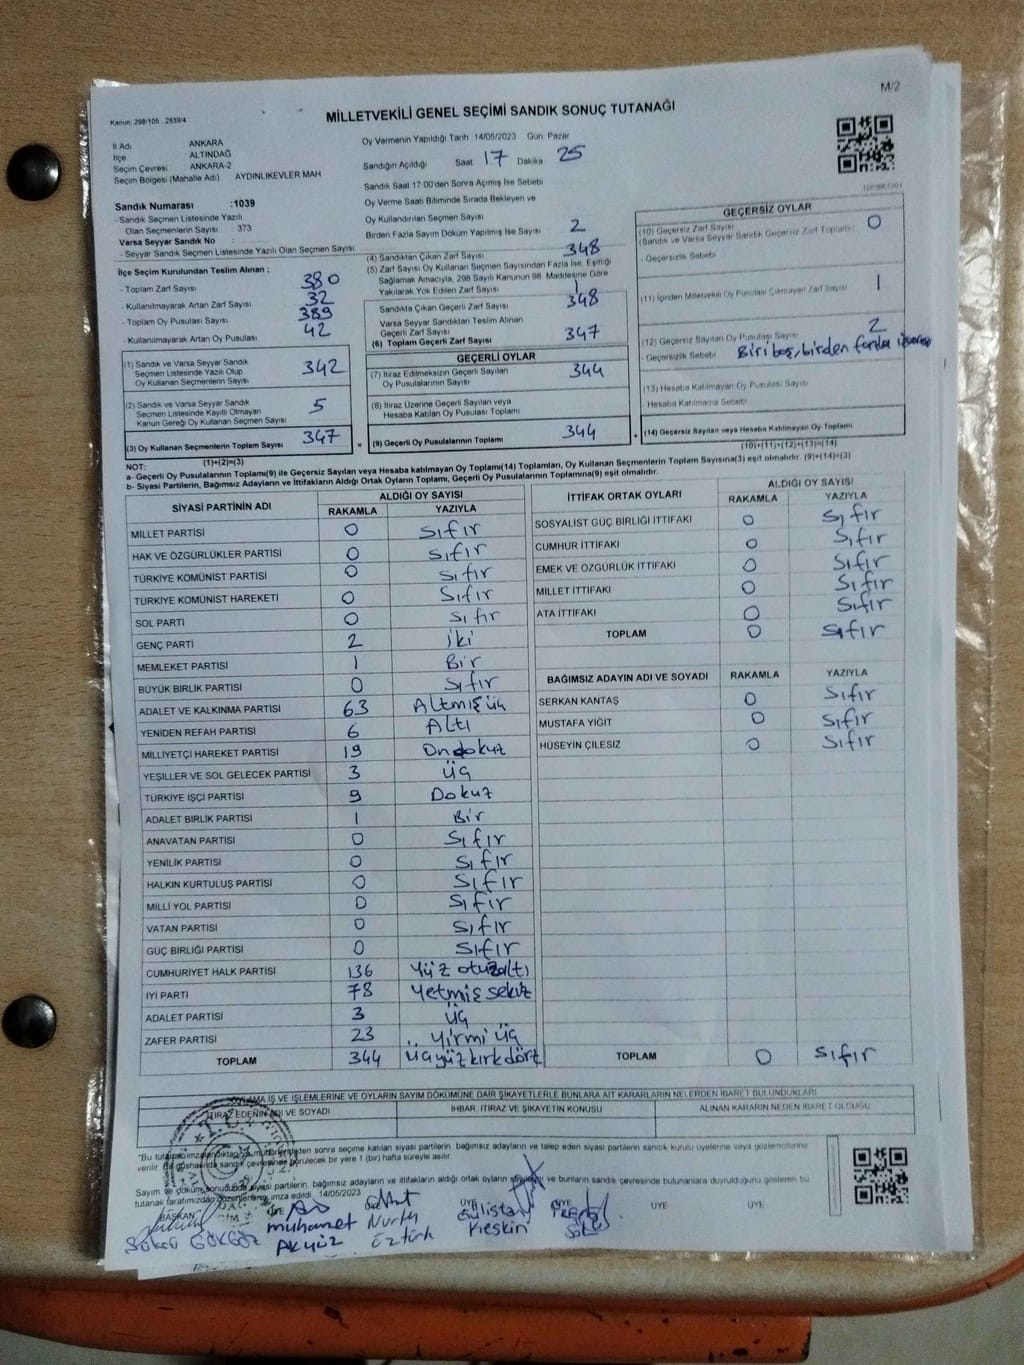 M/2
Kanun: 298/105, 2839/4
MİLLETVEKİLİ GENEL SEÇİMİ SANDIK SONUÇ TUTANAĞI
İl Adı ANKARA
İlçe ALTINDAĞ
Seçim Çevresi ANKARA-2
Seçim Bölgesi (Mahalle Adı) AYDINLIKEVLER MAH
Sandık Numarası :1039
- Sandık Seçmen Listesinde Yazılı
Olan Seçmenlerin Sayısı 373
Varsa Seyyar Sandık No :
- Seyyar Sandık Seçmen Listesinde Yazılı Olan Seçmen Sayısı
İlçe Seçim Kurulundan Teslim Alınan :
- Toplam Zarf Sayısı 380
- Kullanılmayarak Artan Zarf Sayısı 32
- Toplam Oy Pusulası Sayısı 389
- Kullanılmayarak Artan Oy Pusulası 42
(1) Sandık ve Varsa Seyyar Sandık
Seçmen Listesinde Yazılı Olup
Oy Kullanan Seçmenlerin Sayısı 342
(2) Sandık ve Varsa Seyyar Sandık
Seçmen Listesinde Kayıtlı Olmayan
Kanun Gereği Oy Kullanan Seçmen Sayısı 5
(3) Oy Kullanan Seçmenlerin Toplam Sayısı 347
(1)+(2)=(3)
Oy Vermenin Yapıldığı Tarih 14/05/2023 Gün Pazar
Sandığın Açıldığı Saat 17 Dakika 25
Sandık Saat 17.00'den Sonra Açılmış İse Sebebi
Oy Verme Saati Bitiminde Sırada Bekleyen ve
Oy Kullandırılan Seçmen Sayısı
Birden Fazla Sayım Döküm Yapılmış İse Sayısı 2
(4) Sandıktan Çıkan Zarf Sayısı 348
(5) Zarf Sayısı Oy Kullanan Seçmen Sayısından Fazla İse, Eşitliği
Sağlamak Amacıyla, 298 Sayılı Kanunun 98. Maddesine Göre
Yakılarak Yok Edilen Zarf Sayısı 1
Sandıkta Çıkan Geçerli Zarf Sayısı 348
Varsa Seyyar Sandıktan Teslim Alınan
Geçerli Zarf Sayısı
(6) Toplam Geçerli Zarf Sayısı 347
GEÇERLİ OYLAR
(7) İtiraz Edilmeksizin Geçerli Sayılan
Oy Pusulalarının Sayısı 344
(8) İtiraz Üzerine Geçerli Sayılan veya
Hesaba Katılan Oy Pusulası Toplamı
= (9) Geçerli Oy Pusulalarının Toplamı 344
GEÇERSİZ OYLAR
(10) Geçersiz Zarf Sayısı 0
(Sandık ve Varsa Seyyar Sandık Geçersiz Zarf Toplamı)
- Geçersizlik Sebebi
(11) İçinden Milletvekili Oy Pusulası Çıkmayan Zarf Sayısı 1
(12) Geçersiz Sayılan Oy Pusulası Sayısı 2
- Geçersizlik Sebebi Biri boş, birden fazla
(13) Hesaba Katılmayan Oy Pusulası Sayısı
- Hesaba Katılmama Sebebi
+ (14) Geçersiz Sayılan veya Hesaba Katılmayan Oy Toplamı
(10)+(11)+(12)+(13)=(14)
NOT:
a- Geçerli Oy Pusulalarının Toplamı(9) ile Geçersiz Sayılan veya Hesaba katılmayan Oy Toplamı(14) Toplamları, Oy Kullanan Seçmenlerin Toplam Sayısına(3) eşit olmalıdır. (9)+(14)=(3)
b- Siyasi Partilerin, Bağımsız Adayların ve İttifakların Aldığı Ortak Oyların Toplamı, Geçerli Oy Pusulalarının Toplamına(9) eşit olmalıdır.
SİYASİ PARTİNİN ADI ALDIĞI OY SAYISI
RAKAMLA YAZIYLA
MİLLET PARTİSİ 0 sıfır
HAK VE ÖZGÜRLÜKLER PARTİSİ 0 sıfır
TÜRKİYE KOMÜNİST PARTİSİ 0 sıfır
TÜRKİYE KOMÜNİST HAREKETİ 0 sıfır
SOL PARTİ 0 sıfır
GENÇ PARTİ 2 iki
MEMLEKET PARTİSİ 1 Bir
BÜYÜK BİRLİK PARTİSİ 0 sıfır
ADALET VE KALKINMA PARTİSİ 63 Altmış üç
YENİDEN REFAH PARTİSİ 6 Altı
MİLLİYETÇİ HAREKET PARTİSİ 19 Ondokuz
YEŞİLLER VE SOL GELECEK PARTİSİ 3 üç
TÜRKİYE İŞÇİ PARTİSİ 9 Dokuz
ADALET BİRLİK PARTİSİ 1 Bir
ANAVATAN PARTİSİ 0 sıfır
YENİLİK PARTİSİ 0 sıfır
HALKIN KURTULUŞ PARTİSİ 0 sıfır
MİLLİ YOL PARTİSİ 0 sıfır
VATAN PARTİSİ 0 sıfır
GÜÇ BİRLİĞİ PARTİSİ 0 sıfır
CUMHURİYET HALK PARTİSİ 136 Yüz otuzaltı
İYİ PARTİ 78 Yetmiş sekiz
ADALET PARTİSİ 3 üç
ZAFER PARTİSİ 23 Yirmi üç
TOPLAM 344 üçyüz kırk dört
İTTİFAK ORTAK OYLARI ALDIĞI OY SAYISI
RAKAMLA YAZIYLA
SOSYALİST GÜÇ BİRLİĞİ İTTİFAKI 0 sıfır
CUMHUR İTTİFAKI 0 sıfır
EMEK VE ÖZGÜRLÜK İTTİFAKI 0 sıfır
MİLLET İTTİFAKI 0 sıfır
ATA İTTİFAKI 0 sıfır
TOPLAM 0 sıfır
BAĞIMSIZ ADAYIN ADI VE SOYADI RAKAMLA YAZIYLA
SERKAN KANTAŞ 0 sıfır
MUSTAFA YİĞİT 0 sıfır
HÜSEYİN ÇİLESİZ 0 sıfır
TOPLAM 0 sıfır
OYLAMA İŞ VE İŞLEMLERİNE VE OYLARIN SAYIM DÖKÜMÜNE DAİR ŞİKAYETLERLE BUNLARA AİT KARARLARIN NELERDEN İBARET BULUNDUKLARI
İTİRAZ EDENİN ADI VE SOYADI İHBAR, İTİRAZ VE ŞİKAYETİN KONUSU ALINAN KARARIN NEDEN İBARET OLDUĞU
seçime katılan siyasi partilerin, bağımsız adayların ve talep eden siyasi partilerin sandık kurulu üyelerine veya gözlemcilerine
verilir. görülecek bir yere 1 (bir) hafta süreyle asılır.
Sayım ve döküm siyasi partilerin, bağımsız adayların ve ittifakların aldığı ortak oyların ve bunların sandık çevresinde bulunanlara duyrulduğunu gösteren bu
tutanak tarafımızdan düzenlenerek imza edildi. 14/05/2023
BAŞKAN ÜYE ÜYE ÜYE ÜYE ÜYE
Şükrü GÖKGÖZ
muhamet AKyüz
Nurten Öztürk
Gülistan Keskin